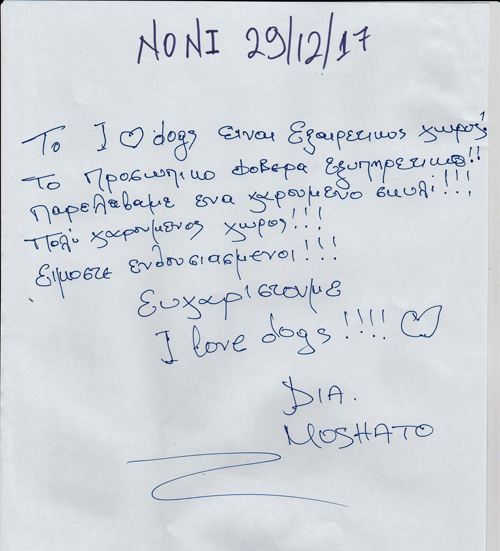 NONI 29/12/17
Το I ♡ dogs ειναι εξαιρετικος χωρος!
Το προσωπικο φοβερα εξυπηρετικο!!
Παρελαβαμε ενα χαρουμενο σκυλί!!!
Πολύ χαρουμενος χωρος!!!
Ειμαστε ενθουσιασμενοι!!!
Ευχαρίστουμε
I love dogs!!!! ♡
DIA.
MOSHATO